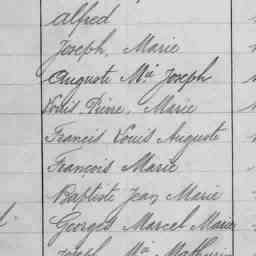 Alfred
Joseph, Marie
Auguste Mie Joseph
Louis Pierre, Marie
Francis Louis Auguste
François Marie
Baptiste Jean Marie
Georges Marcel Marie
Joseph Mie Mathurin